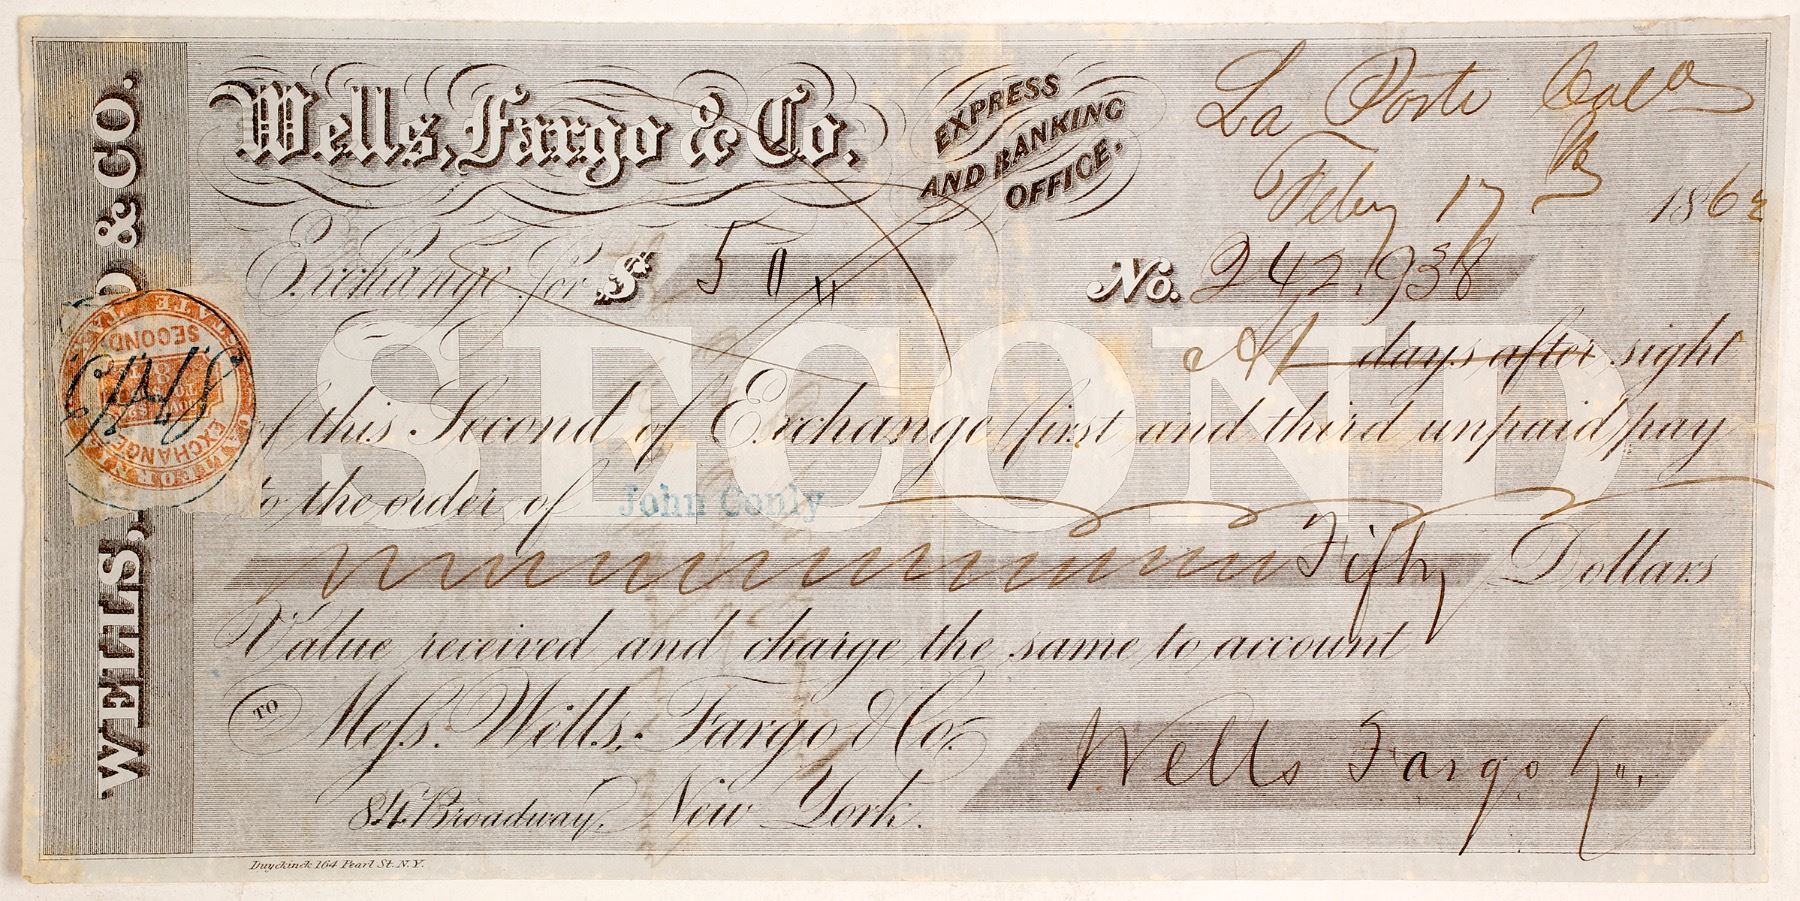 Wells, Fargo & Co.
EXPRESS
AND BANKING
OFFICE.
La Porte
Feby 17 1862
Exchange for $ 50 " No. 242.938
SECOND
At days after sight
of this Second of Exchange (first and third unpaid) pay
to the order of John Conly
Fifty Dollars
Value received and charge the same to account
TO Mess. Wells, Fargo & Co.
84 Broadway, New York.
Wells Fargo & Co.
Duyckinck 164 Pearl St. N.Y.
WELLS, & CO.
SECOND
EXCHANGE